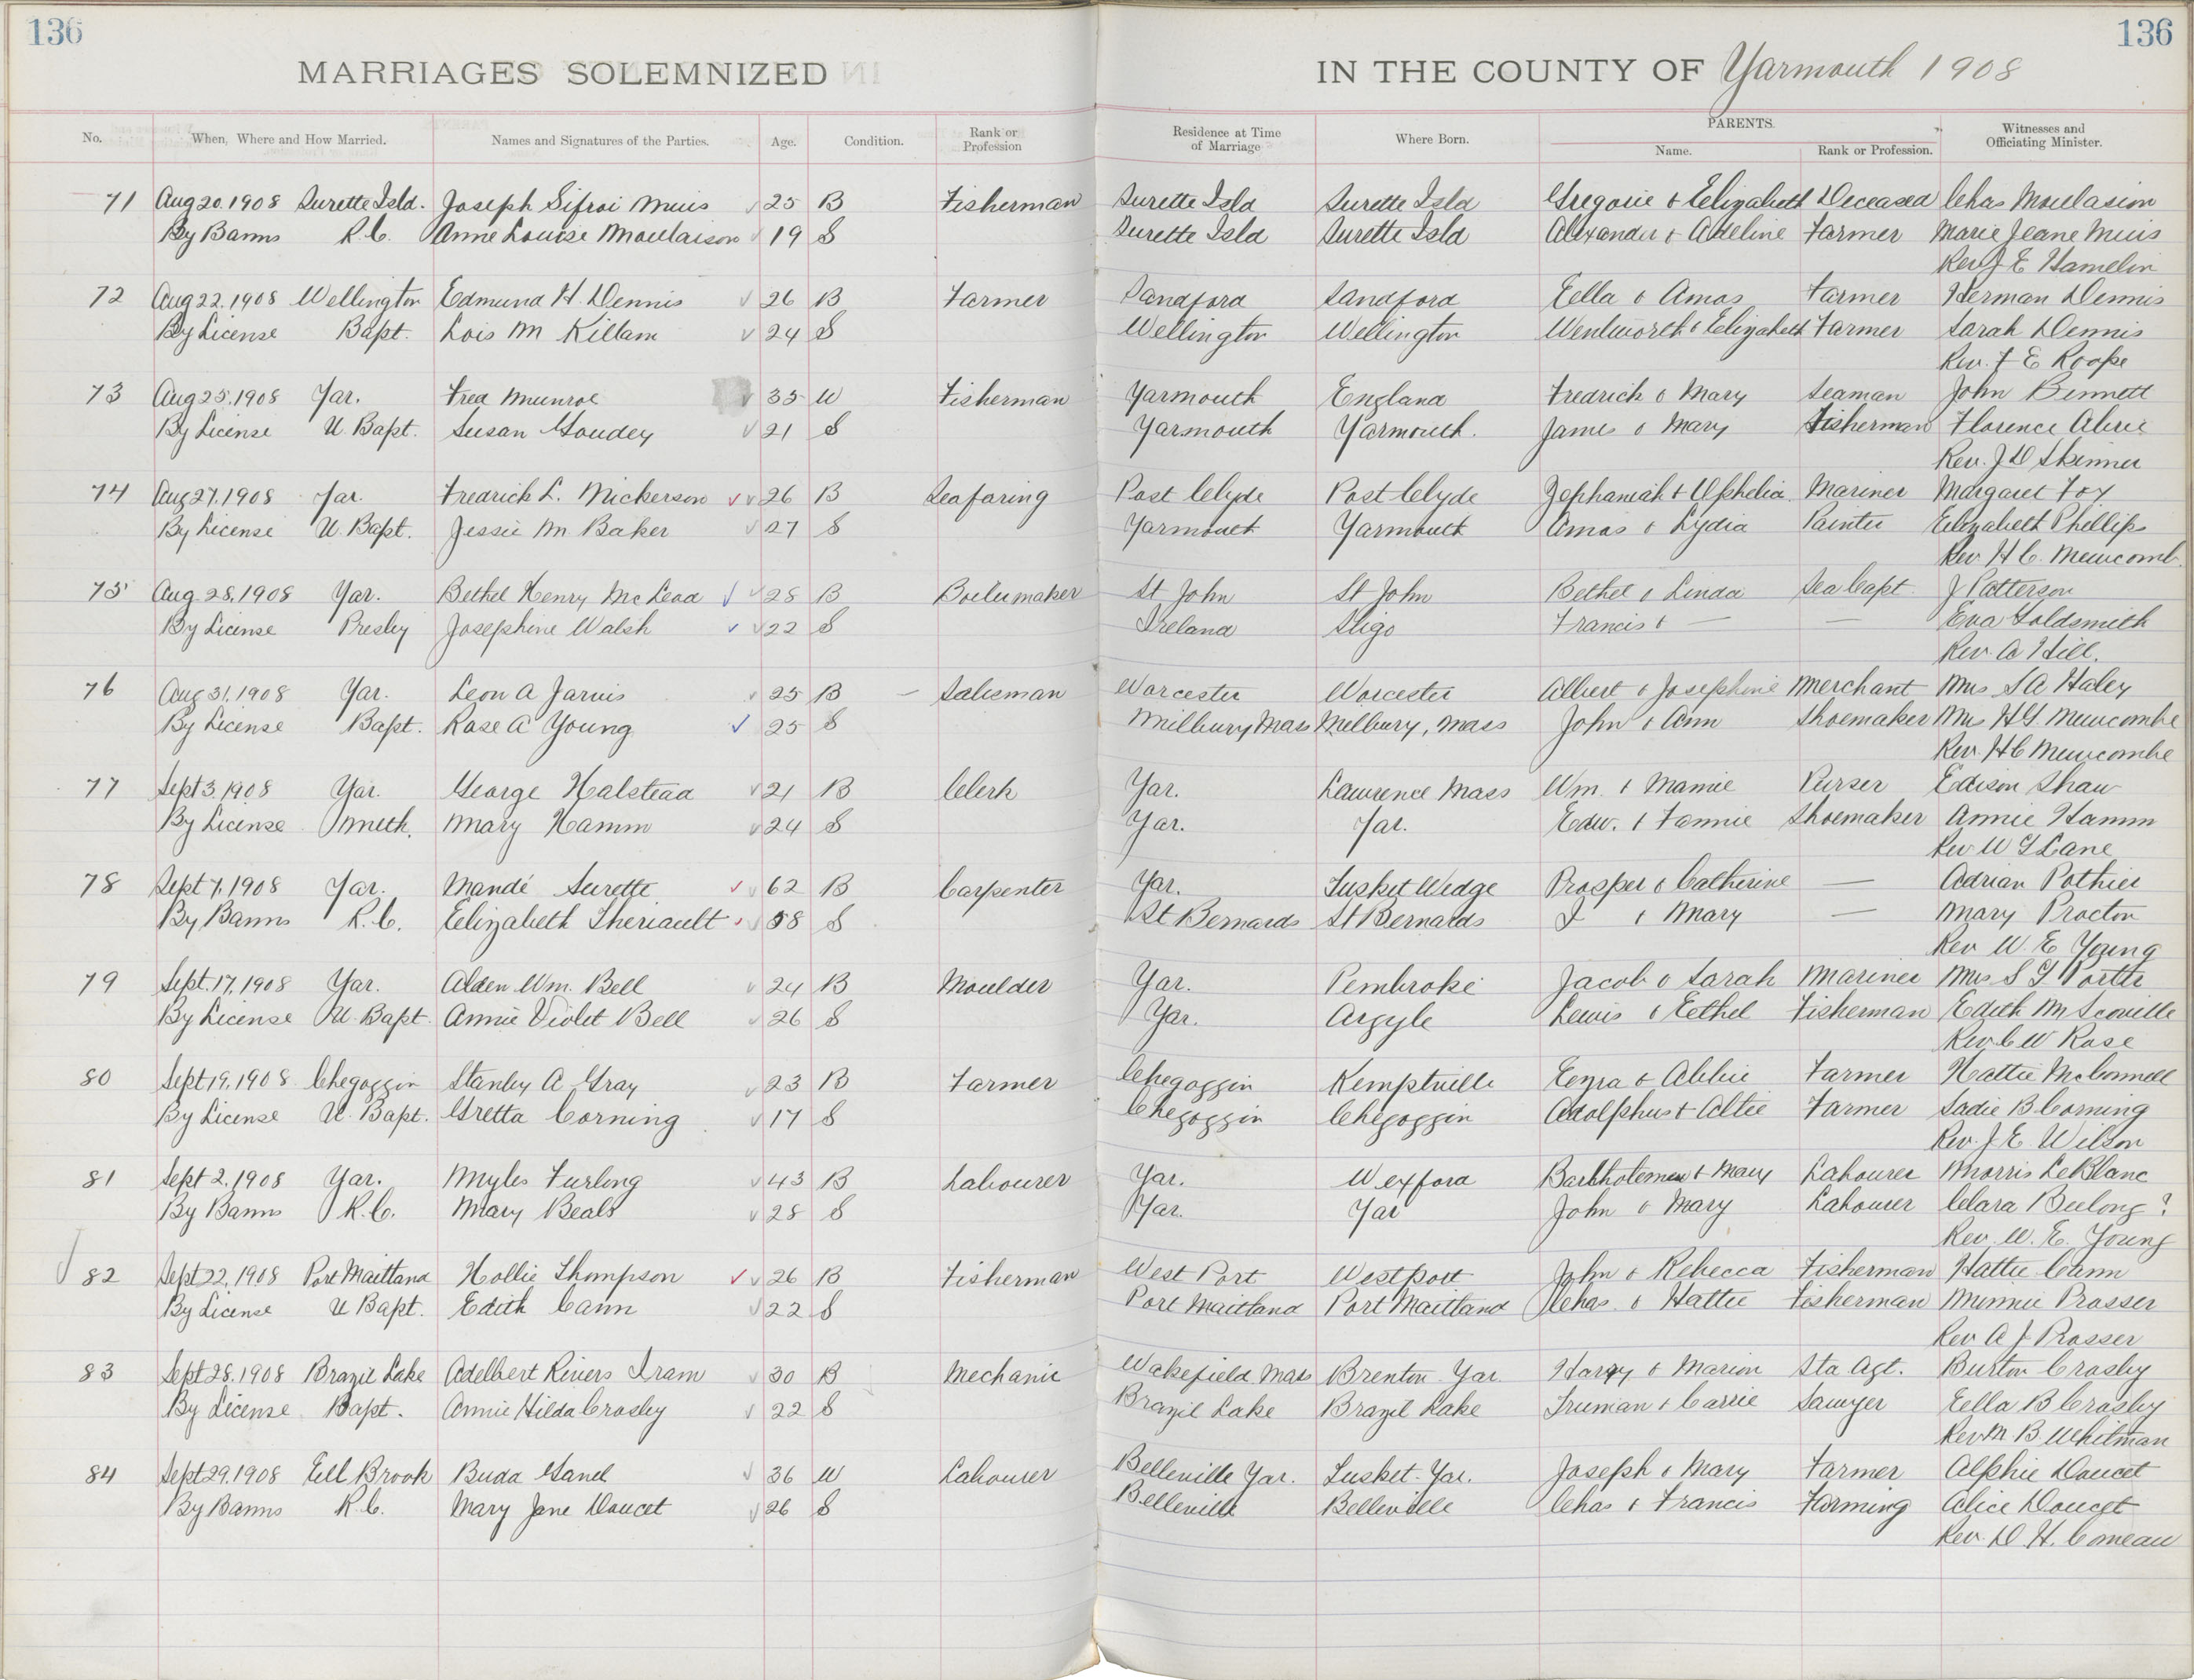 136
136
MARRIAGES SOLEMNIZED IN THE COUNTY OF Yarmouth 1908
No. When, Where and How Married. Names and Signatures of the Parties. Age. Condition. Rank or Profession Residence at Time of Marriage Where Born. PARENTS. Name. Rank or Profession. Witnesses and Officiating Minister.
71 Aug 20, 1908 Surette Isld. Joseph Sifroi Muis 25 B Fisherman Surette Isld Surette Isld Gregoire & Elizabeth Deceased Chas Moulasion
By Banns R.C. Anne Louise Moulaison 19 S Surette Isld Surette Isld Alexander & Adeline Farmer Marie Jeane Muis
Rev J E Hamelin
72 Aug 22, 1908 Wellington Edmund H. Dennis 26 B Farmer Sandford Sandford Eella & Amos Farmer Herman Dennis
By License Bapt. Lois M Killam 24 S Wellington Wellington Wentworth & Elizabeth Farmer Sarah Dennis
Rev. F E Roope
73 Aug 25, 1908 Yar. Fred Munroe 35 W Fisherman Yarmouth England Fredrick & Mary Seaman John Bennett
By License U. Bapt. Susan Goudey 21 S Yarmouth Yarmouth. James & Mary Fisherman Florence
Rev. J D Skinner
74 Aug 27, 1908 Yar. Fredrich L. Nickerson 26 B Seafaring Port Clyde Port Clyde Zephaniah & Ophelia Mariner Margaret Foy
By License U. Bapt. Jessie M Baker 27 S Yarmouth Yarmouth Amos & Lydia Painter Elizabeth Phillips
Rev. H C. Newcomb.
75 Aug 28, 1908 Yar. Bethel Henry McLeod 28 B Boilermaker St John St John Bethel & Linda Sea Capt J Patterson
By License Presby Josephine Walsh 22 S Ireland Sligo Francis & — — Eva Goldsmith
Rev. A Hill.
76 Aug 31, 1908 Yar. Leon A Jarvis 25 B – Salesman Worcester Worcester Albert & Josephine Merchant Mrs S A Haley
By License Bapt. Rose A Young 25 S Milbury Mass Milbury, Mass John & Ann Shoemaker Mrs H G. Newcombe
Rev. H C Newcombe
77 Sept 3, 1908 Yar. George Halstead 21 B Clerk Yar. Lawrence Mass Wm. & Mamie Purser Edison Shaw
By License Meth. Mary Hamm 24 S Yar. Yar. Edw. & Fannie Shoemaker Annie Hamm
Rev W G Lane
78 Sept 7, 1908 Yar. Mandé Surette 62 B Carpenter Yar. Tusket Wedge Prosper & Catherine — Adrian Pothier
By Banns R.C. Elizabeth Theriault 58 S St Bernards St Bernards & Mary — Mary Procton
Rev W. E Young
79 Sept. 17, 1908 Yar. Alden Wm. Bell 24 B Moulder Yar. Pembroke Jacob & Sarah Mariner Mrs S G Porter
By License U. Bapt. Annie Violet Bell 26 S Yar. Argyle Lewis & Eethel Fisherman Edith M Scoville
Rev C W Rose
80 Sept 19, 1908 Chegoggin Stanley A Gray 23 B Farmer Chegoggin Kemptville Ezra & Abbie Farmer Hattie McConnell
By License U. Bapt. Gretta Corning 17 S Chegoggin Chegoggin Adolphus & Altie Farmer Sadie B Corning
Rev. J. E Wilson
81 Sept 2, 1908 Yar. Myles Furlong 43 B Labourer Yar. Wexford Bartholemew & Mary Labourer Morris LeBlanc
By Banns R.C. Mary Beals 28 S Yar. Yar John & Mary Labourer Clara Beelong?
Rev. W. E. Young
82 Sept 22, 1908 Port Maitland Hollie Thompson 26 B Fisherman West Port Westport John & Rebecca Fisherman Hattie Cann
By License U Bapt. Edith Cann 22 S Port Maitland Port Maitland Chas. & Hattie Fisherman Minnie Prosser
Rev A J Prosser
83 Sept 28, 1908 Brazil Lake Adelbert Rivers Tram 30 B Mechanic Wakefield Mass Brenton Yar. Harry & Marion Sta Agt. Burton Crosby
By License Bapt. Annie Hilda Crosby 22 S Brazil Lake Brazil Lake Truman & Carrie Sawyer Eella B Crosby
Rev M B Whitman
84 Sept 29, 1908 Eell Brook Buda Gand 36 W Labourer Belleville Yar. Tusket. Yar. Joseph & Mary Farmer Alphie Doucet
By Banns R.C. Mary Jane Doucet 26 S Belleville Belleville Chas & Francis Farming Alice Doucet
Rev. D. H. Comeau